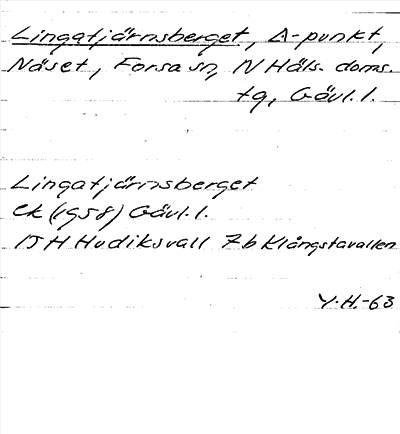 Lingatjärnsberget, Δ-punkt,
Näset, Forsa sn, N Häls. doms.
tg, Gävl. l.
Lingatjärnsberget
ek (1958) Gävl. l.
15H Hudiksvall 7b Klångstavallen
Y.H.-63